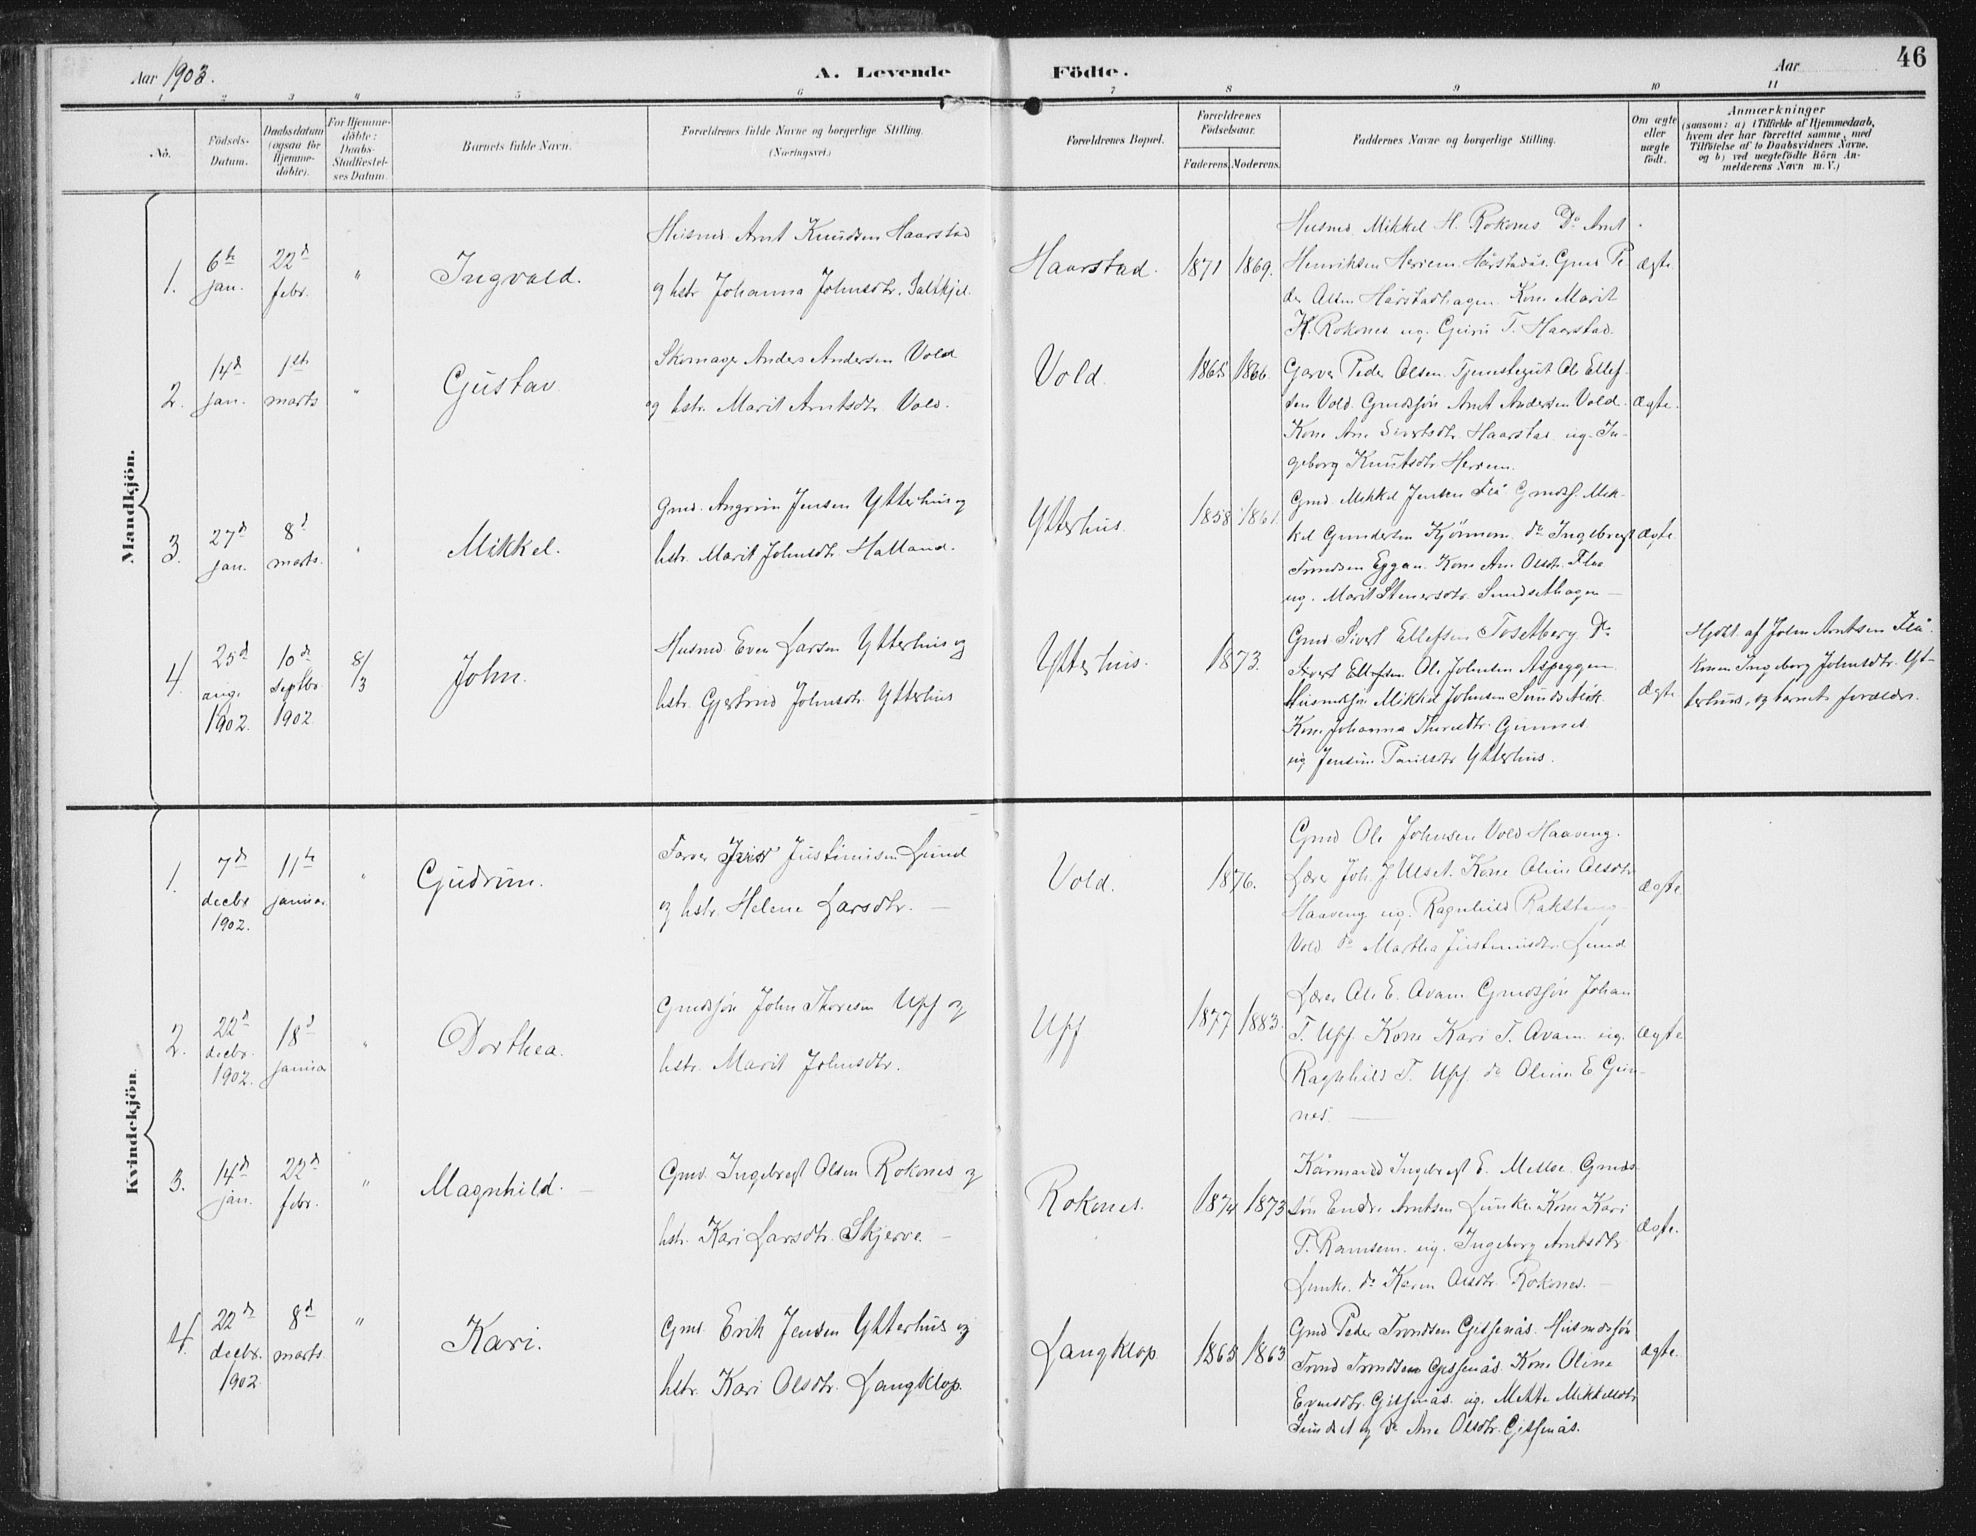 Aar 1903.
A. Levende Födte.
Aar
46
1 2 3 4 5 6 7 8 9 10 11
No.
Födsels-Datum.
Daabsdatum (ogsaa for Hjemme-döbte).
For Hjemme-döbte: Daabs-Stadfæstel-ses Datum.
Barnets fulde Navn.
Forældrenes fulde Navne og borgerlige Stilling. (Næringsvei.)
Forældrenes Bopæl.
Forældrenes Födselsaar.
Faderens. Moderens.
Faddernes Navne og borgerlige Stilling.
Om ægte eller uægte födt.
Anmærkninger
(saasom: a) i Tilfælde af Hjemmedaab,
hvem der har forrettet samme, med
Tilföielse af to Daabsvidners Navne.
og b) ved uægtefödte Börn An-
melderens Navn m. V.)
Mandkjön.
1.
6te jan.
22d febr.
"
Ingvald.
Husmd. Arnt Knudsen Haarstad
og hstr. Johanna Johnsdtr. Saltkjel.
Haarstad.
1871 1869.
Husmd. Mikkel H. Rokones Do Arnt
Henriksen Herrem. Harstadås. Gmd Pe
der Olsen Hårstadhagen. Kone Marit
H. Rokones ug. Guru T. Haarstad.
ægte.
2.
14d jan.
1ste marts
"
Gustav.
Skomager Anders Andersen Vold
og hstr. Marit Arntsdtr. Vold.
Vold.
1865 1866.
Garver Peder Olsen. Tjenestegut Ole Ellef-
sen Vold. Gmdssön Arnt Andersen Vold.
Kone Ane Sivertsdtr. Haarstad ug. In-
geborg Knutsdtr. Herrem.
ægte.
3.
27d jan.
8d marts.
"
Mikkel.
Gmd. Angrim Jensen Ytterhus og
hstr. Marit Johnsdtr. Halland.
Ytterhus.
1858 1861.
Gmd Mikkel Jensen Flå Gmdss. Mik-
kel Gundersen Kjönnem. do Ingebregt
Trondsen Eggan. Kone Ane Olsdtr. Flaa
ug. Marit Steners­dtr. Sundsethagen —
ægte.
4.
25d aug. 1902.
10de Septbr 1902.
8/3
John.
Husmd Even Larsen Ytterhus og
hstr. Gjertrud Johnsdtr. Ytterhus
Ytterhus.
1873.
Gmd. Sivert Ellefsen Tosetberg Do
Sivert Ellefsen Ole Johnsen Aspeggen
Husmdssön Mikkel Johnsen
Kone Johanna Gimnes
ug Jensine Paulsdtr Ytterhus.
ægte
Hjdbt. af John Arntsen Flå.
konen Ingeborg Johnsdtr. Yt-
terhus, og barnets forældre.
Kvindekjön.
1.
7d decbr 1902.
11te januar
"
Gudrun.
Farver Justinusen Lund
og hstr. Helene Larsdtr. —
Vold.
1876.
Gmd Ole Johnsen Vold Haaveng.
Lærer Joh. J Ulset. Kone Oline Olsdtr
Haaveng ug. Ragnhild
Vold do Martha Justinusdtr. Lund
ægte
2.
22d decbr. 1902.
18d januar
"
Dorthea.
Gmdssön John Thoresen Upf og
hstr. Marit Johnsdtr.
Upf
1877 1883.
Lærer Ole E. Avam. Gmdssön Johan
T. Upf. Kone Kari T. Avam ug.
Ragnhild T. Upf. do Oline E Gim-
nes. —
ægte
3.
14d jan.
22d febr.
"
Magnhild.
Gmd. Ingebregt Olsen Rokones og
hstr. Kari Larsdtr. Skjerve —
Rokones.
1874 1873
Kårmand Ingebregt E. Melbø. Gmds-
sön Endre Arntsen Lunke. Kone Kari
P. Ramsem. ug. Ingeborg Arntsdtr
Lunke. do Karen Olsdtr. Rokones. —
ægte.
4.
22d decbr. 1902
8d marts
"
Kari.
Gmd. Erik Jensen Ytterhus og
hstr. Kari Olsdtr. Langklop.
Langklop
1865 1863
Gmd Peder Trondsen Gilsenås. Husmdssön
Trond Trondsen Gilsenås. Kone Oline
Evensdtr. Gilsenås. ug. Mette Mikkelsdtr
Sundset og do Ane Olsdtr. Gilsenås.
ægte.